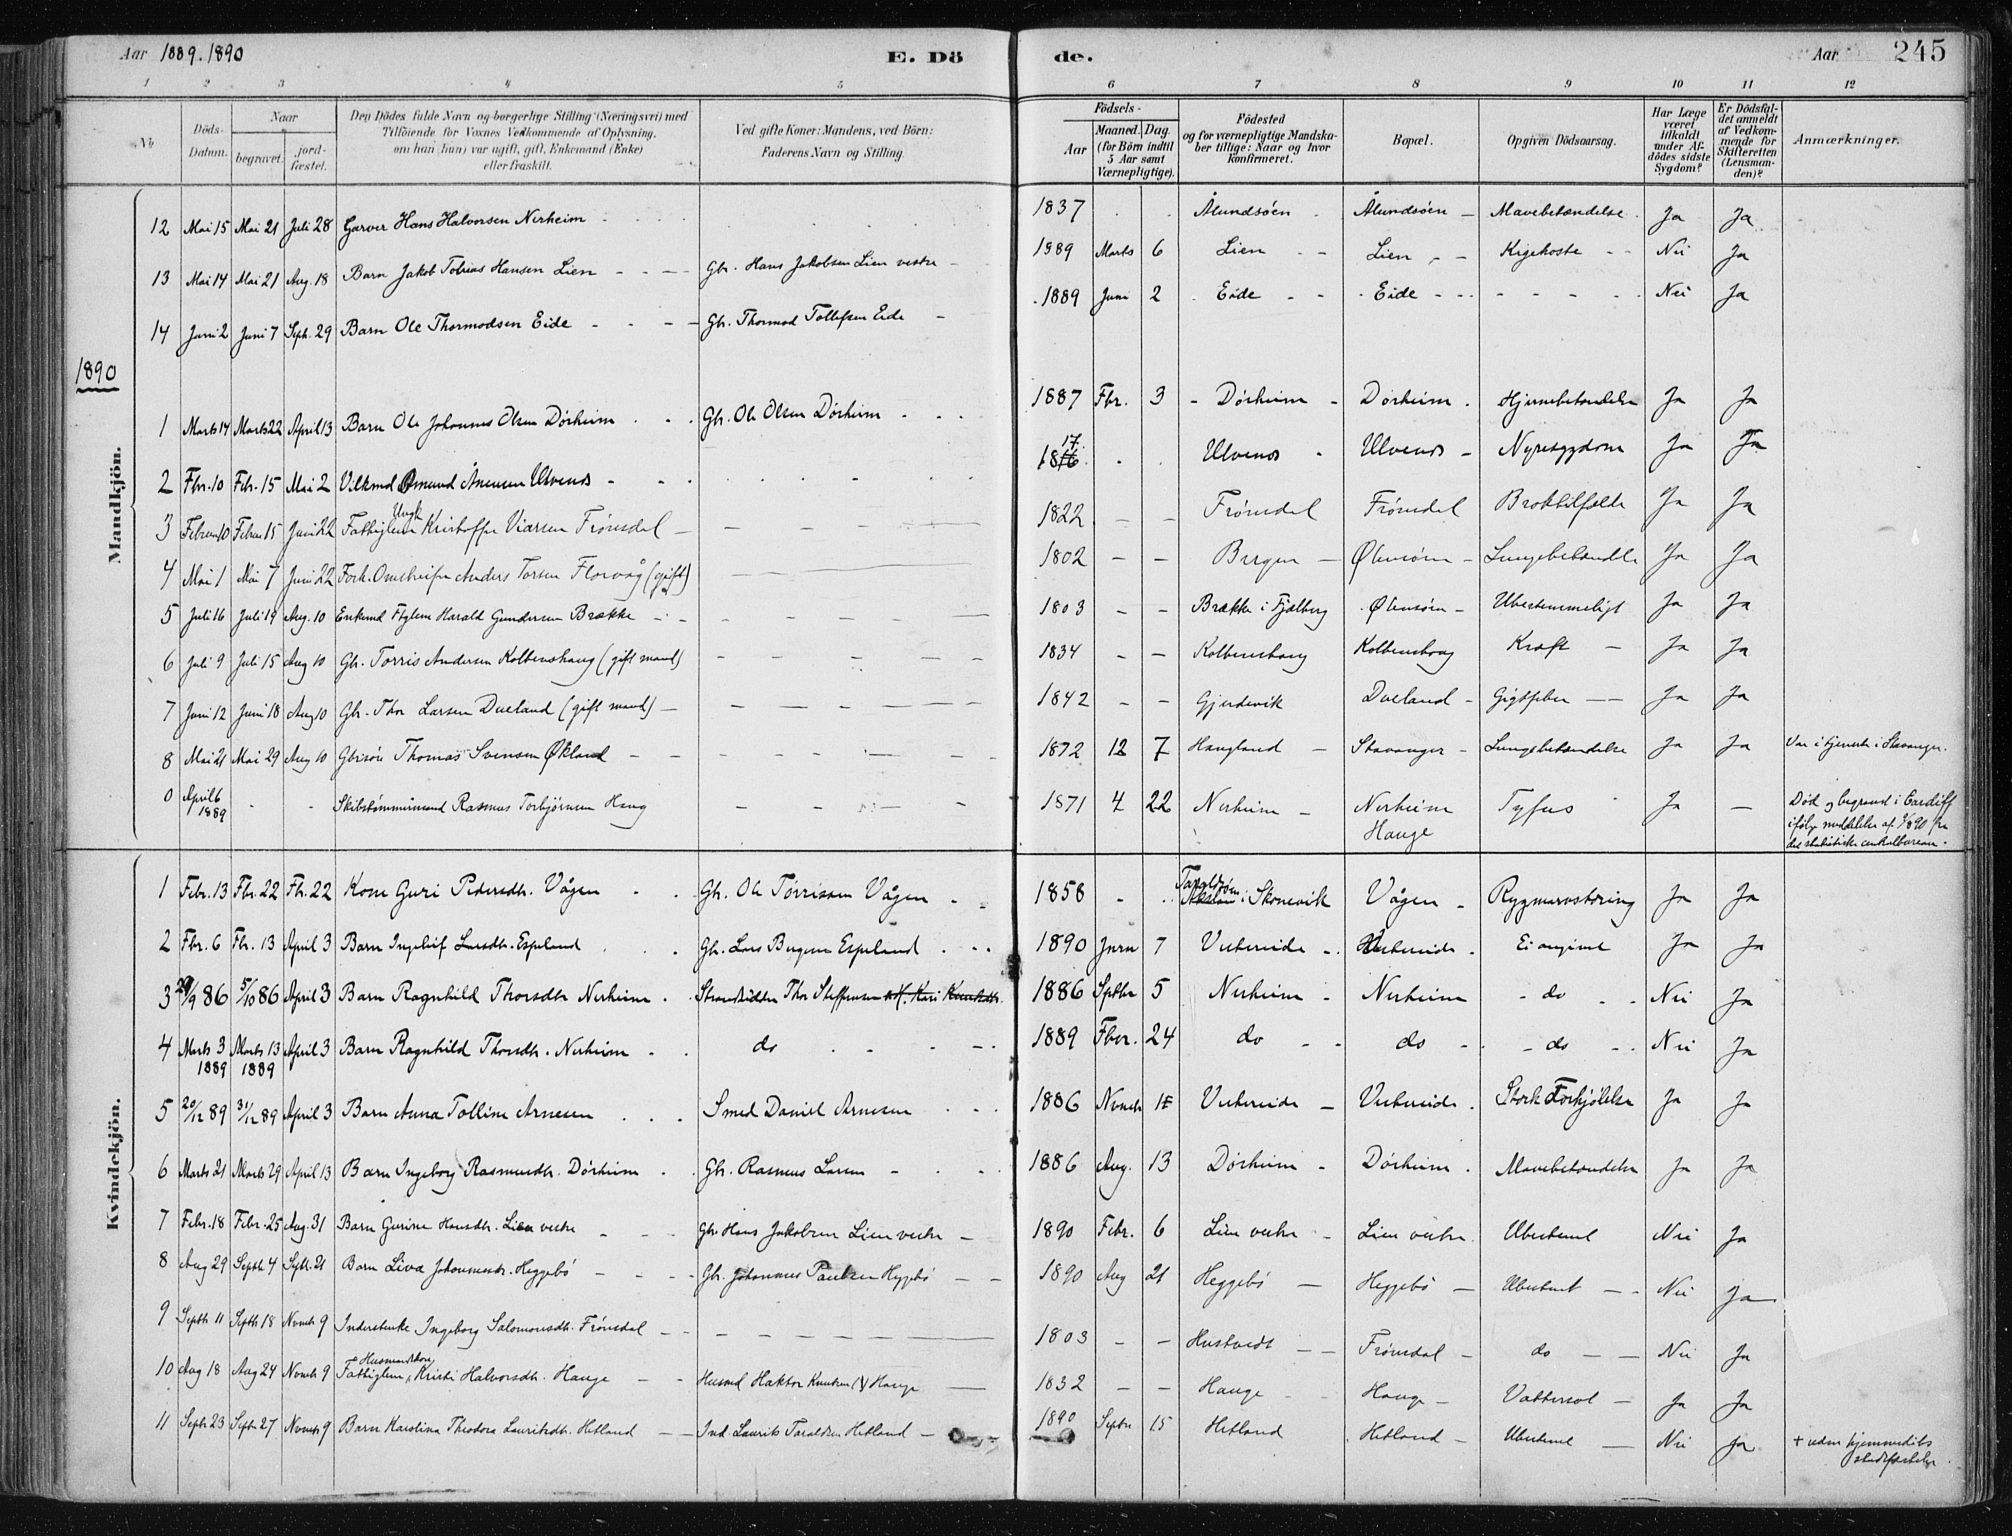 Aar 1889.1890 E. Dö de. Aar 245
1 2 3 4 5 6 7 8 9 10 11 12
No
Döds-Datum.
Naar begravet. jordfæstet.
Den Dödes fulde Navn og borgerlige Stilling (Næringsvei) med
Tilföiende for Voxnes Vedkommende af Oplysning.
om han (hun) var ugift, gift, Enkemand (Enke)
eller fraskilt.
Ved gifte Koner: Mandens, ved Börn:
Faderens Navn og Stilling.
Födsels-
Aar Maaned. Dag.
(for Börn indtil
5 Aar samt
Værnepligtige).
Födested
og for værnepligtige Mandska-
ber tillige: Naar og hvor
Konfirmeret.
Bopæl.
Opgiven Dödsaarsag.
Har Læge
været
tilkaldt
under Af-
dödes sidste
Sygdom?
Er Dödsfal-
det anmeldt
af Vedkom-
mende for
Skifteretten
(Lensman-
den)?
Anmærkninger.
Mandkjön.
12 Mai 15 Mai 21 Juli 28 Garver Hans Halvorsen Nerheim 1837 Ålundsöen Ålundsöen Mavebetændelse Ja Ja
13 Mai 14 Mai 21 Aug. 18 Barn Jakob Tobias Hansen Lien Gbr. Hans Jakobsen Lien vestre 1889 Marts 6 Lien Lien Kighoste Nei Ja
14 Juni 2 Juni 7 Sept. 29 Barn Ole Thormodsen Eide Gbr. Thormod Tollefsen Eide 1889 Juni 2 Eide Eide Nei Ja
1890
1 Marts 14 Marts 22 April 13 Barn Ole Johannes Olsen Dörheim Gbr. Ole Olsen Dörheim 1887 Fbr. 3 Dörheim Dörheim Hjernebetændelse Ja Ja
2 Fbr. 10 Febr. 15 Mai 2 Omund Ulvenes 1816 17 Ulvenes Ulvenes Nyresygdom Ja Ja
3 Februar 10 Februar 15 Juni 22 Fattiglem Ungk Kristoffer Frönsdal 1822 Frönsdal Frönsdal Broktilfælde Ja Ja
4 Mai 1 Mai 7 Juni 22 Anders Torsen Florvåg (gift) 1802 Bergen Ølensöen Lungebetændelse Ja Ja
5 Juli 16 Juli 19 Aug. 10 Enkemd Ftglem Harald Gundersen Brække 1803 Brække i Fjelberg Ølensöen Ubestemmeligt Ja Ja
6 Juli 9 Juli 15 Aug 10 Gbr. Torris Andersen Kolbenshaug (gift mand) 1834 Kolbenshaug Kolbenshaug Kræft Ja Ja
7 Juni 12 Juni 18 Aug 10 Gbr. Thor Larsen Dueland (gift mand) 1842 Gjerdevik Dueland Gigtfeber Ja Ja
8 Mai 21 Mai 29 Aug 10 Gbrsön Thomas Svensen Økland 1872 12 7 Haugland Stavanger Lungebetændelse Ja Ja Var i tjeneste i Stavanger.
0 April 6 1889 Skibstömmermand Rasmus Torbjörnsen Haug 1871 4 22 Nerheim Nerheim Hauge Tyfus Ja Död og begravet i Cardiff
ifölge meddelelse af fra
det statistiske centralbureau.
Kvindekjön.
1 Febr. 13 Fbr. 22 Fbr. 22 Kone Guri Pedersdtr. Vågen Gbr. Ole Törrissen Vågen 1858 Skonevik Vågen Rygmarvstæring Ja Ja
2 Fbr. 6 Fbr. 13 April 3 Barn Ingeleif Larsdtr. Espeland Gbr. Lars Bergesen Espeland 1890 Janr 7 Vestereide Vestereide Ei angivet Ja Ja
3 29/9 86 5/10 86 April 3 Barn Ragnhild Thorsdtr. Nerheim Strandsidder Thor Steffensen 1886 Septbr 5 Nerheim Nerheim do Nei Ja
4 Marts 3 1889 Marts 13 1889 April 3 Barn Ragnhild Thorsdtr. Nerheim do 1889 Fbr. 24 do do do Nei Ja
5 20/12 89 31/12 89 April 3 Barn Anna Tolline Arnesen Smed Daniel Arnesen 1886 Novnbr Vestereide Vestereide Stærk Forkjölelse Ja Ja
6 Marts 21 Marts 29 April 13 Barn Ingeborg Rasmusdtr. Dörheim Gbr. Rasmus Larsen 1886 Aug. 13 Dörheim Dörheim Mavebetændelse Ja Ja
7 Febr. 18 Febr. 25 Aug. 31 Barn Gurine Hansdtr. Lien vestre Gbr. Hans Jakobsen Lien vestre 1890 Febr. 6 Lien vestre Lien vestre Ubestemt Nei Ja
8 Aug 29 Septb 4 Septb. 21 Barn Liva Johannesdtr. Heggebö Gbr. Johannes Paulsen Heggebö 1890 Aug 21 Heggebö Heggebö Ubestemt Nei Ja
9 Septb 11 Septb 18 Novnb 9 Inderstenke Ingeborg Salomonsdtr. Frönsdal 1803 Hustvedt Frönsdal do Nei Ja
10 Aug 18 Aug 24 Novnb 9 Fattiglem, Husmandskone Kristi Halvorsdtr. Hauge Husmd Haktor Knutsen Hauge 1832 Hauge Hauge Vattersot Ja Ja
11 Septr 23 Septr 27 Novnb 9 Barn Karolina Theodora Lauritsdtr. Hetland Ind. Laurits Taraldsen Hetland 1890 Septbr 15 Hetland Hetland Ubestemt Nei Ja + uden hjemmedöbs
stadfæstelse.